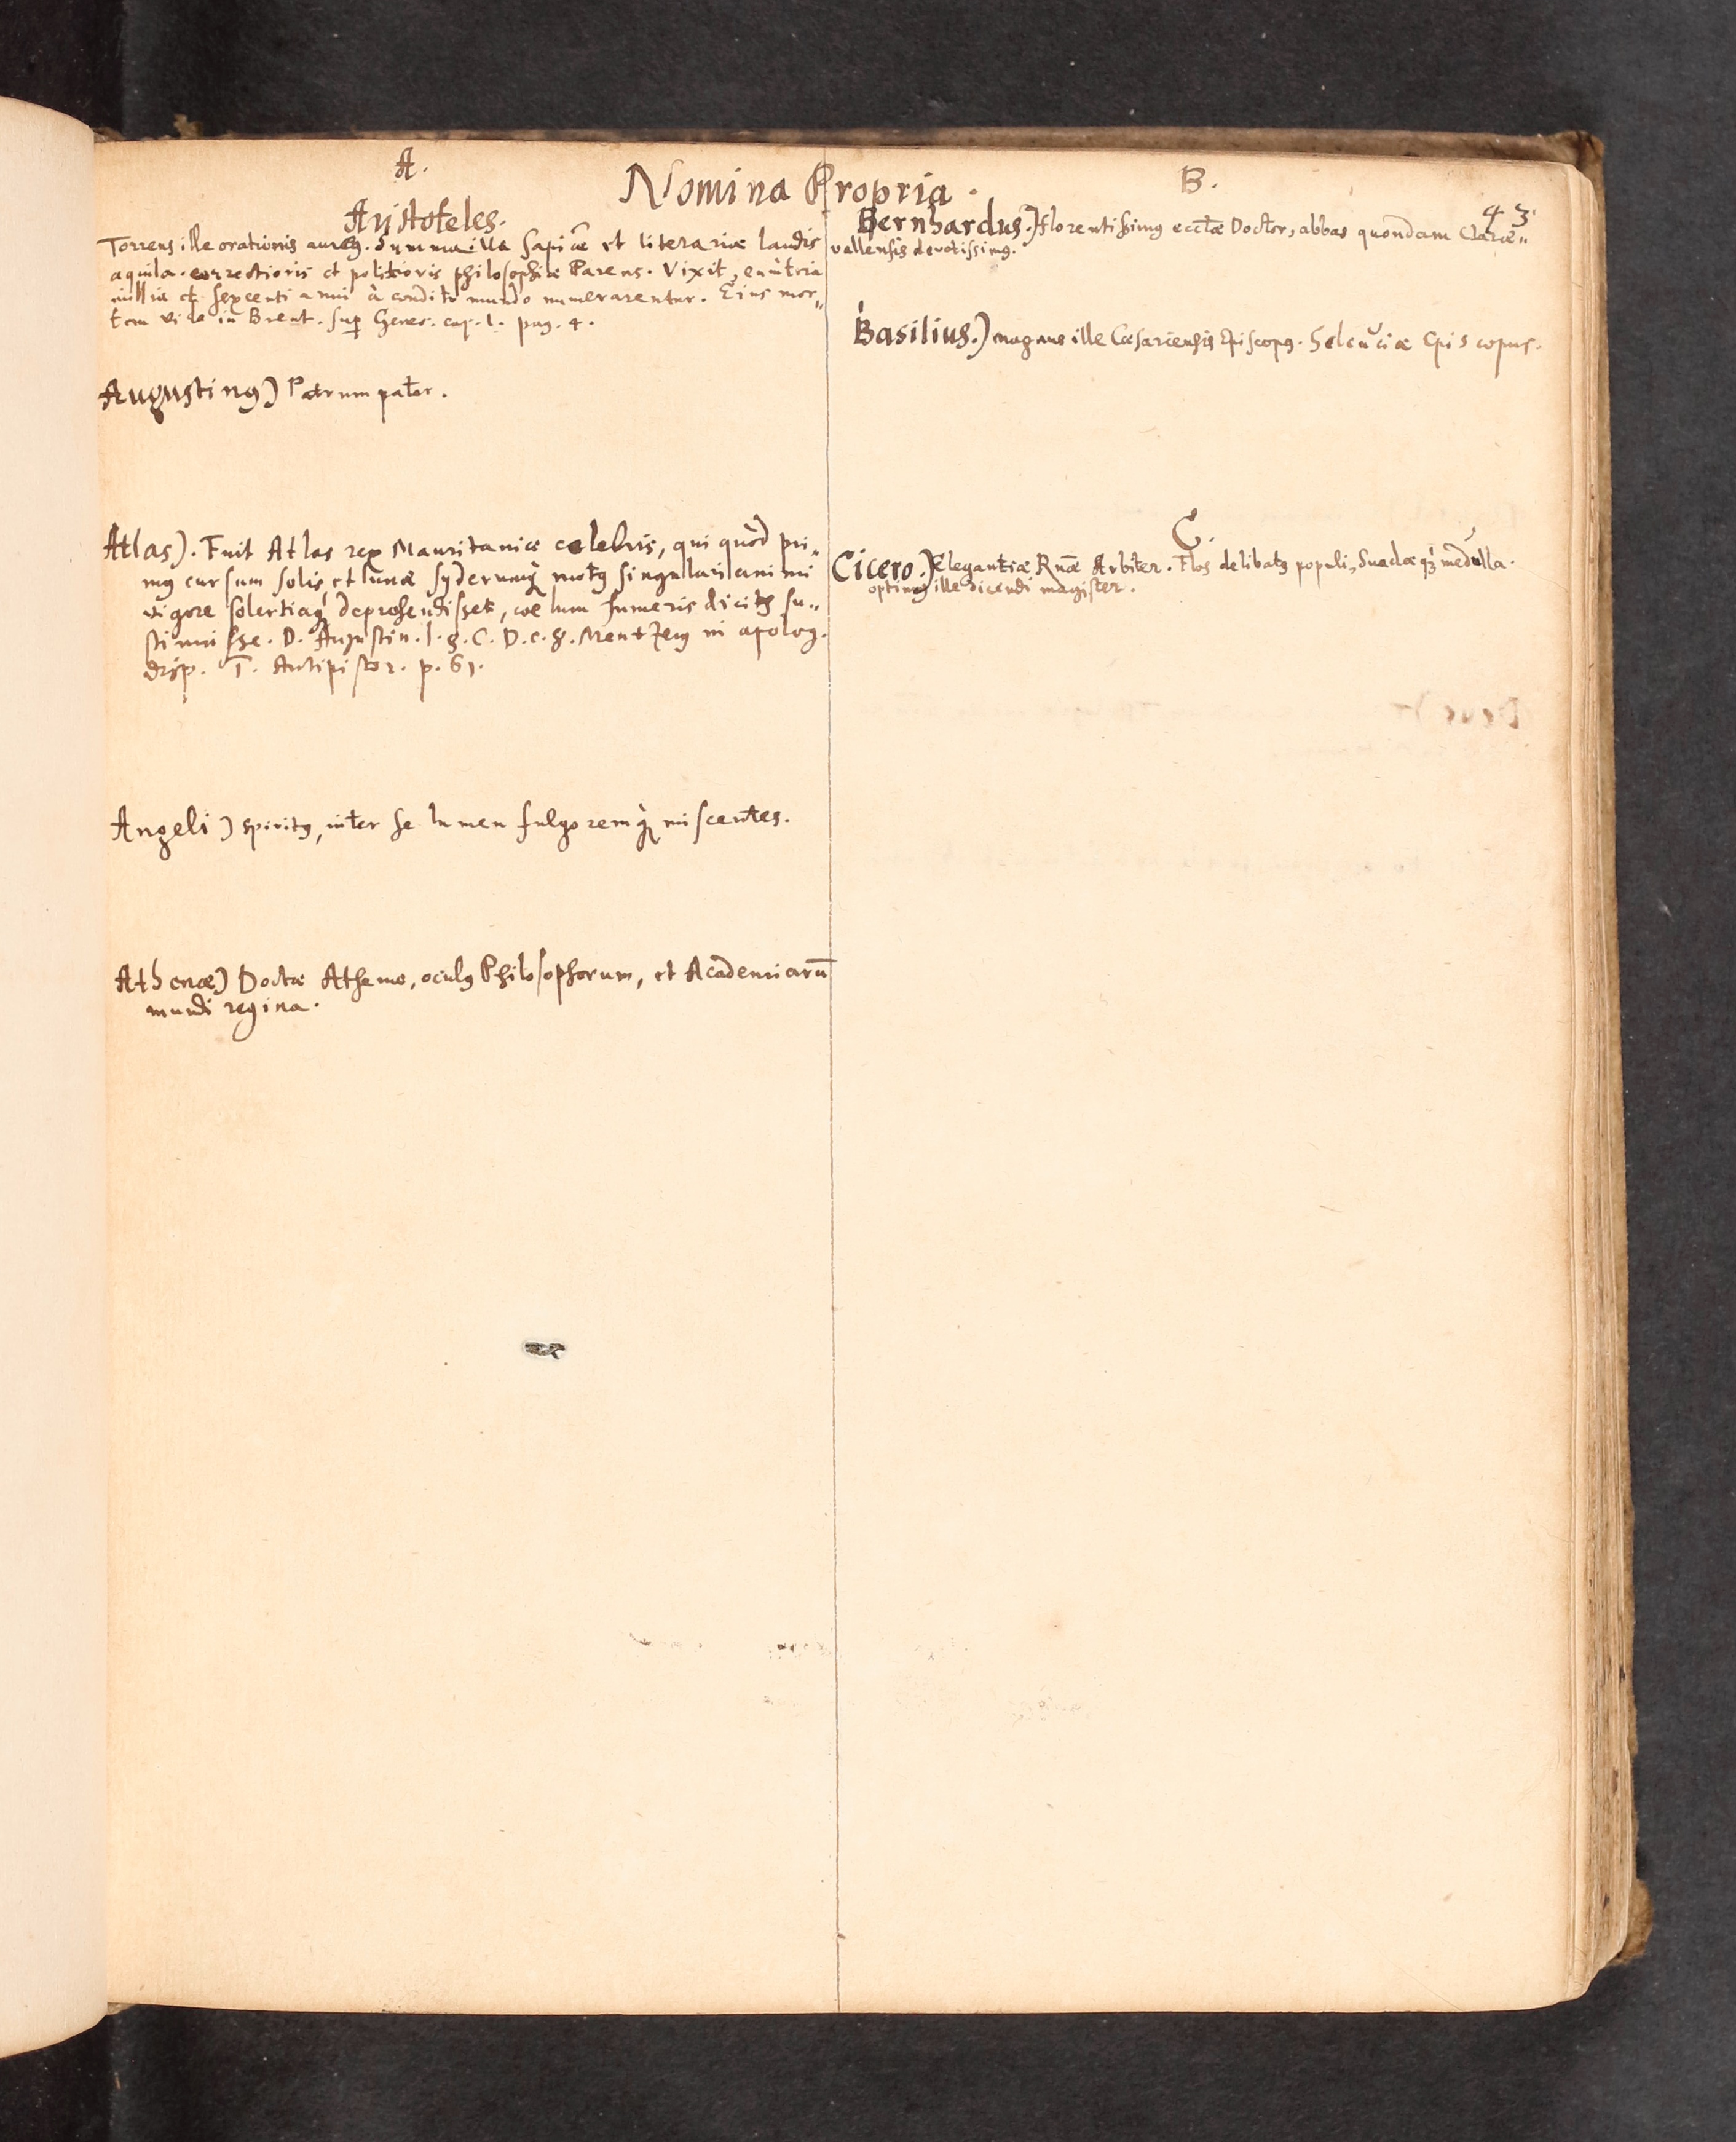 Nomina Propria.
43
A.
Aristoteles.
Torrens ille orationis aureus. Summa illa sapiæ et literariæ laudis
aquila. correctioris et politioris philosophiæ Parens. Vixit, cùm tria
millia et sexcenti anni à condito mundo numerarentur. Eius mor„
tem vide in Brent. sup Genes. cap. 1. pag. 4.
Augustinus) Patrum pater.
Atlas). Fuit Atlas rex Mauritaniæ celebris, qui quòd pri„
mus cursum solis, et lunæ syderumq́ motus singulari animi
vigore solertiaq́ deprehendisset, coelum humeris dicitur su„
stinuisse. D. Augustin. l. 8. C. D. c. 8. Mentzerus in apolog.
disp. T. Antipistor. p. 61.
Angeli) spiritus, inter se lumen fulgoremq́ miscentes.
Athenæ) Doctæ Athenæ, oculus Philosophorum, et Academiarū
mundi regina.
B.
Bernhardus.) Florentissimus eccłæ Doctor, abbas quondam Claræ„
vallensis devotissimus.
Basilius.) magnus ille Cæsariensis Episcopus. Seleuciæ Episcopus.
C.
Cicero.) Elegantiæ Rnæ Arbiter. Flos delibatus populi, Suadæq́ medulla.
optimus ille dicendi magister.